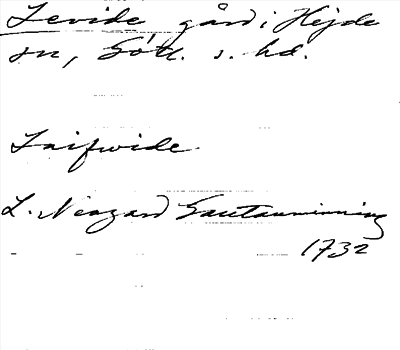 Levide, gård i Hejde
sn, Gotl. s. hd.
Laifwide
L. Neogard Gautauminning
1732